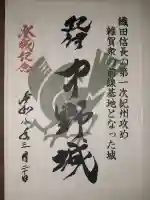 織田信長の第一次紀州攻め
雑賀衆の前線基地となった城
紀州
中野城
登城記念
令和 年三月二十日